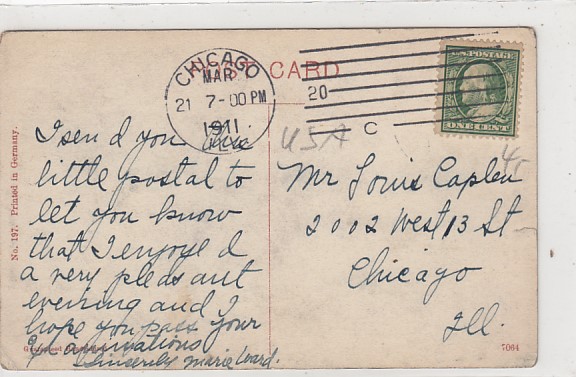 POST CARD
CHICAGO
MAR
21 7-00 PM
1911
ILL.
20
U.S. POSTAGE
ONE CENT
I send you this
little postal to
let you know
that I enjoyed
a very pleasant
evening and I
hope you pass your
examinations
Sincerely Marie Ward.
USA
C
Mr Louis Caplan
2002 West 13 St
Chicago
Ill.
No. 197. Printed in Germany.
7064